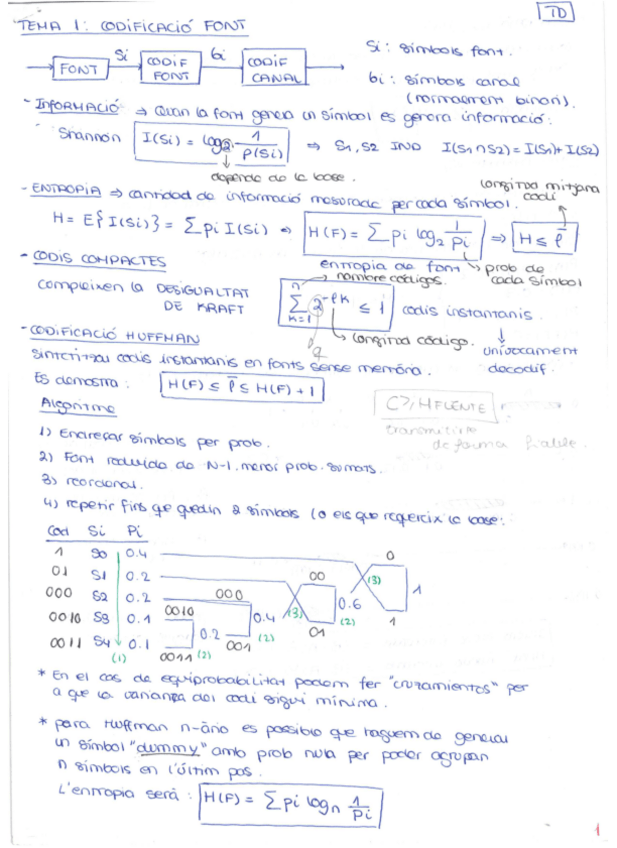 TD
TEMA 1: CODIFICACIÓ FONT
FONT Si CODIF FONT bi CODIF CANAL
Si: símbols font.
bi: símbols canal
(normalment binari).
- INFORMACIÓ → Quan la font genera un símbol es genera informació:
Shannon I(Si) = log2 1/P(Si) ⇒ S1, S2 IND I(S1∩S2) = I(S1) + I(S2)
depende de la base.
longitud mitjana codi
- ENTROPIA ⇒ cantidad de informació mesurada per cada símbol.
H = E{I(Si)} = Σ pi I(Si) → H(F) = Σ pi log2 1/Pi ⇒ H ≤ l̄
entropia de font
prob de cada símbol
- CODIS COMPACTES
nombre códigos.
compleixen la DESIGUALTAT DE KRAFT
n Σ k=1 2^-lk ≤ 1 codis instantanis.
q
longitud código.
unívocament decodif.
- CODIFICACIÓ HUFFMAN
sintetitza codis instantanis en fonts sense memòria.
Es demostra: H(F) ≤ l̄ ≤ H(F) + 1
C > HFUENTE
transmitirlo
de forma fiable.
Algoritme
1) Endreçar símbols per prob.
2) Font reduida de N-1. menor prob. sumats.
3) reordenar.
4) repetir fins que quedin 2 símbols (o els que requereix la base:
Cod Si Pi
1 S0 0.4 0
01 S1 0.2 00 (3) 1
000 S2 0.2 000 0.6 (2)
0010 S3 0.1 0010 0.4 (2) (3) 01 1
0011 S4 0.1 0011 0.2 (2) 001
(1)
* En el cas de equiprobabilitat podem fer "cruzamientos" per
a que la varianza del codi sigui mínima.
* para Huffman n-ario es possible que haguem de generar
un símbol "dummy" amb prob nula per poder agrupar
n símbols en l'últim pas.
L'entropia serà: H(F) = Σ pi logn 1/Pi
1